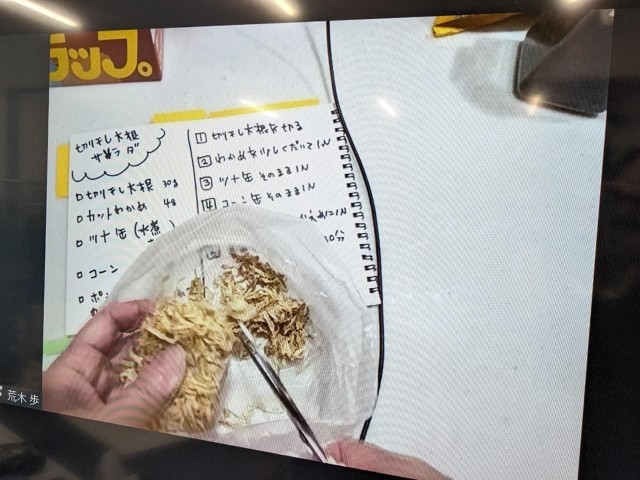 ラップ。
切り干し大根
サラダ
切り干し大根 30g
カットわかめ 4g
ツナ缶(水煮
コーン
ポン
1 切り干し大根を切る
2 わかめを少しくだいてIN
3 ツナ缶そのままIN
4 コーン缶そのままIN
10分
荒木 歩